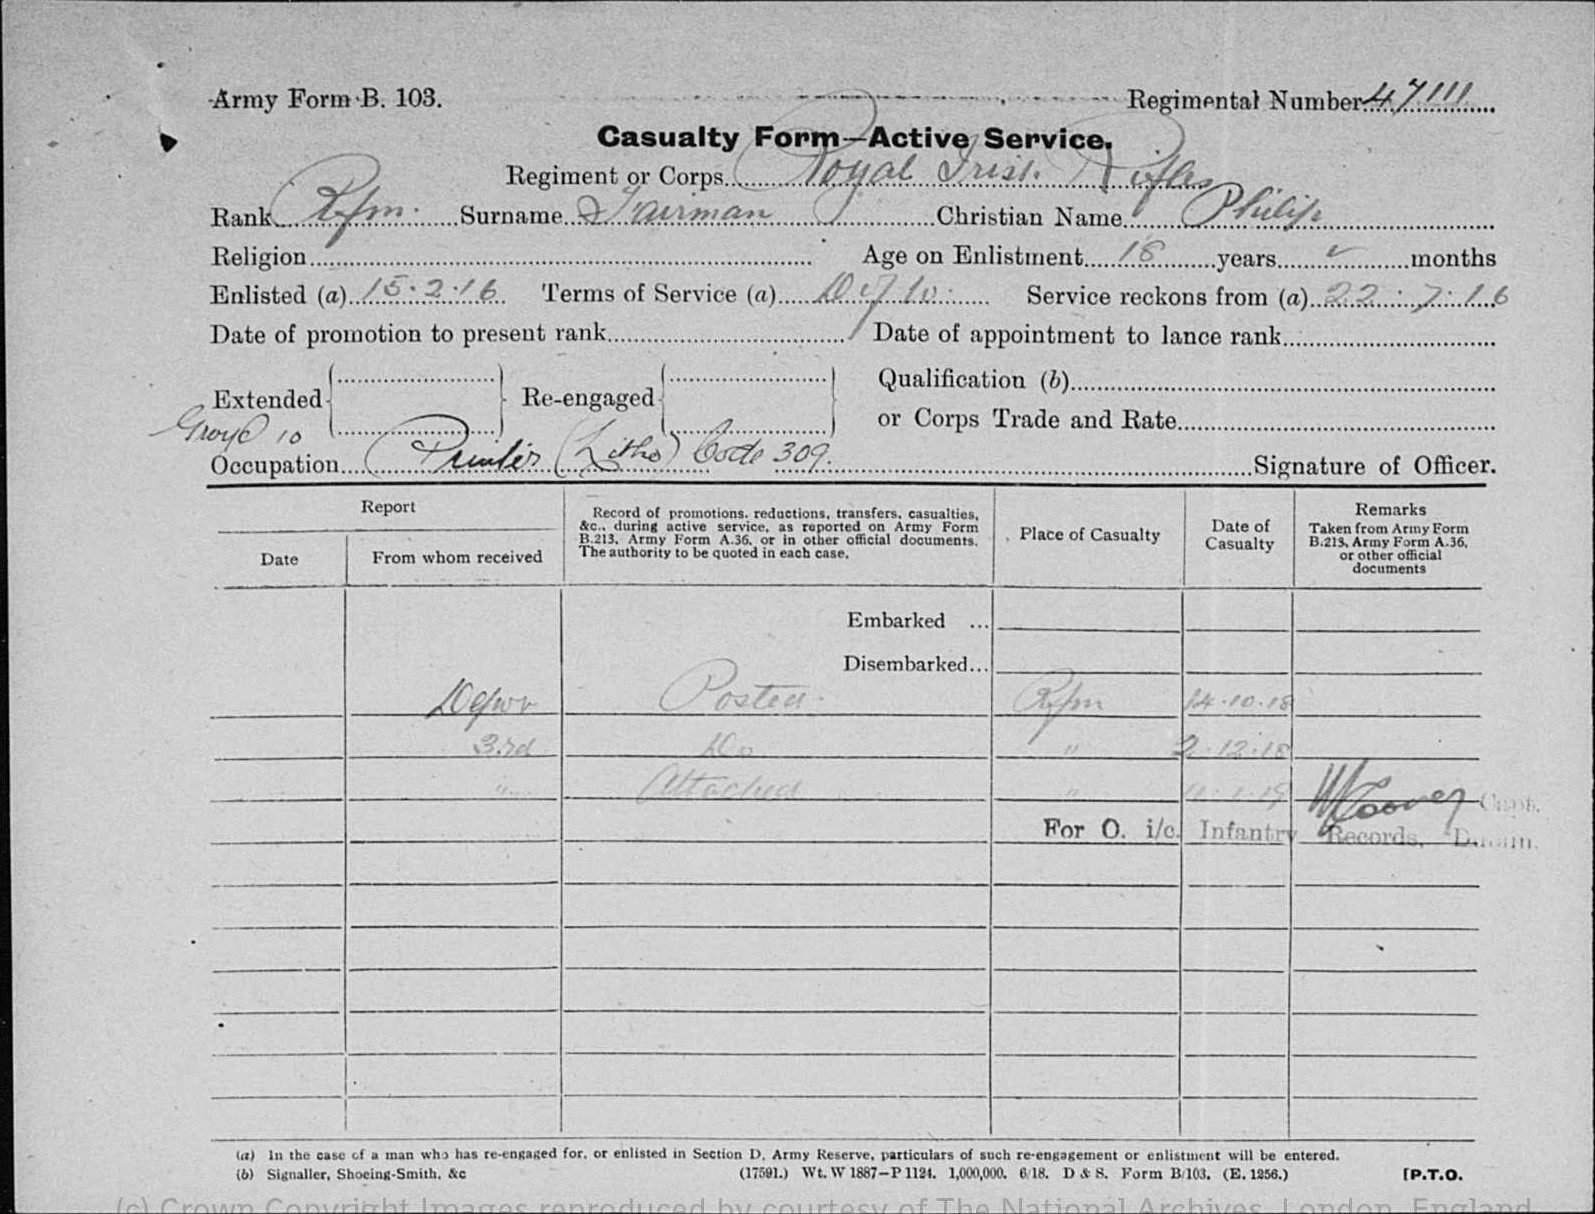 Army Form B. 103.
Regimental Number 47111
Casualty Form—Active Service.
Regiment or Corps Royal Irish Rifles
Rank Rfm. Surname Fairman Christian Name Philip
Religion Age on Enlistment 18 years months
Enlisted (a) 15.2.16 Terms of Service (a) Service reckons from (a) 22.7.16
Date of promotion to present rank Date of appointment to lance rank
Extended Re-engaged Qualification (b)
or Corps Trade and Rate
Group 10
Occupation Printer (Litho) Code 309. Signature of Officer.
Report
Date
From whom received
Record of promotions, reductions, transfers, casualties,
&c., during active service, as reported on Army Form
B.213, Army Form A.36, or in other official documents.
The authority to be quoted in each case.
Place of Casualty
Date of
Casualty
Remarks
Taken from Army Form
B.213, Army Form A.36,
or other official
documents
Embarked ...
Disembarked...
Depot Posted. Rfm 14.10.18
3rd Do " 2.12.18
" Attached " 11.1.19
Capt.
For O. i/c. Infantry Records, Dublin.
(a) In the case of a man who has re-engaged for, or enlisted in Section D, Army Reserve, particulars of such re-engagement or enlistment will be entered.
(b) Signaller, Shoeing-Smith, &c (17591.) Wt. W 1887—P 1124. 1,000,000. 6/18. D & S. Form B/103. (E. 1256.) [P.T.O.
(c) Crown Copyright Images reproduced by courtesy of The National Archives, London, England